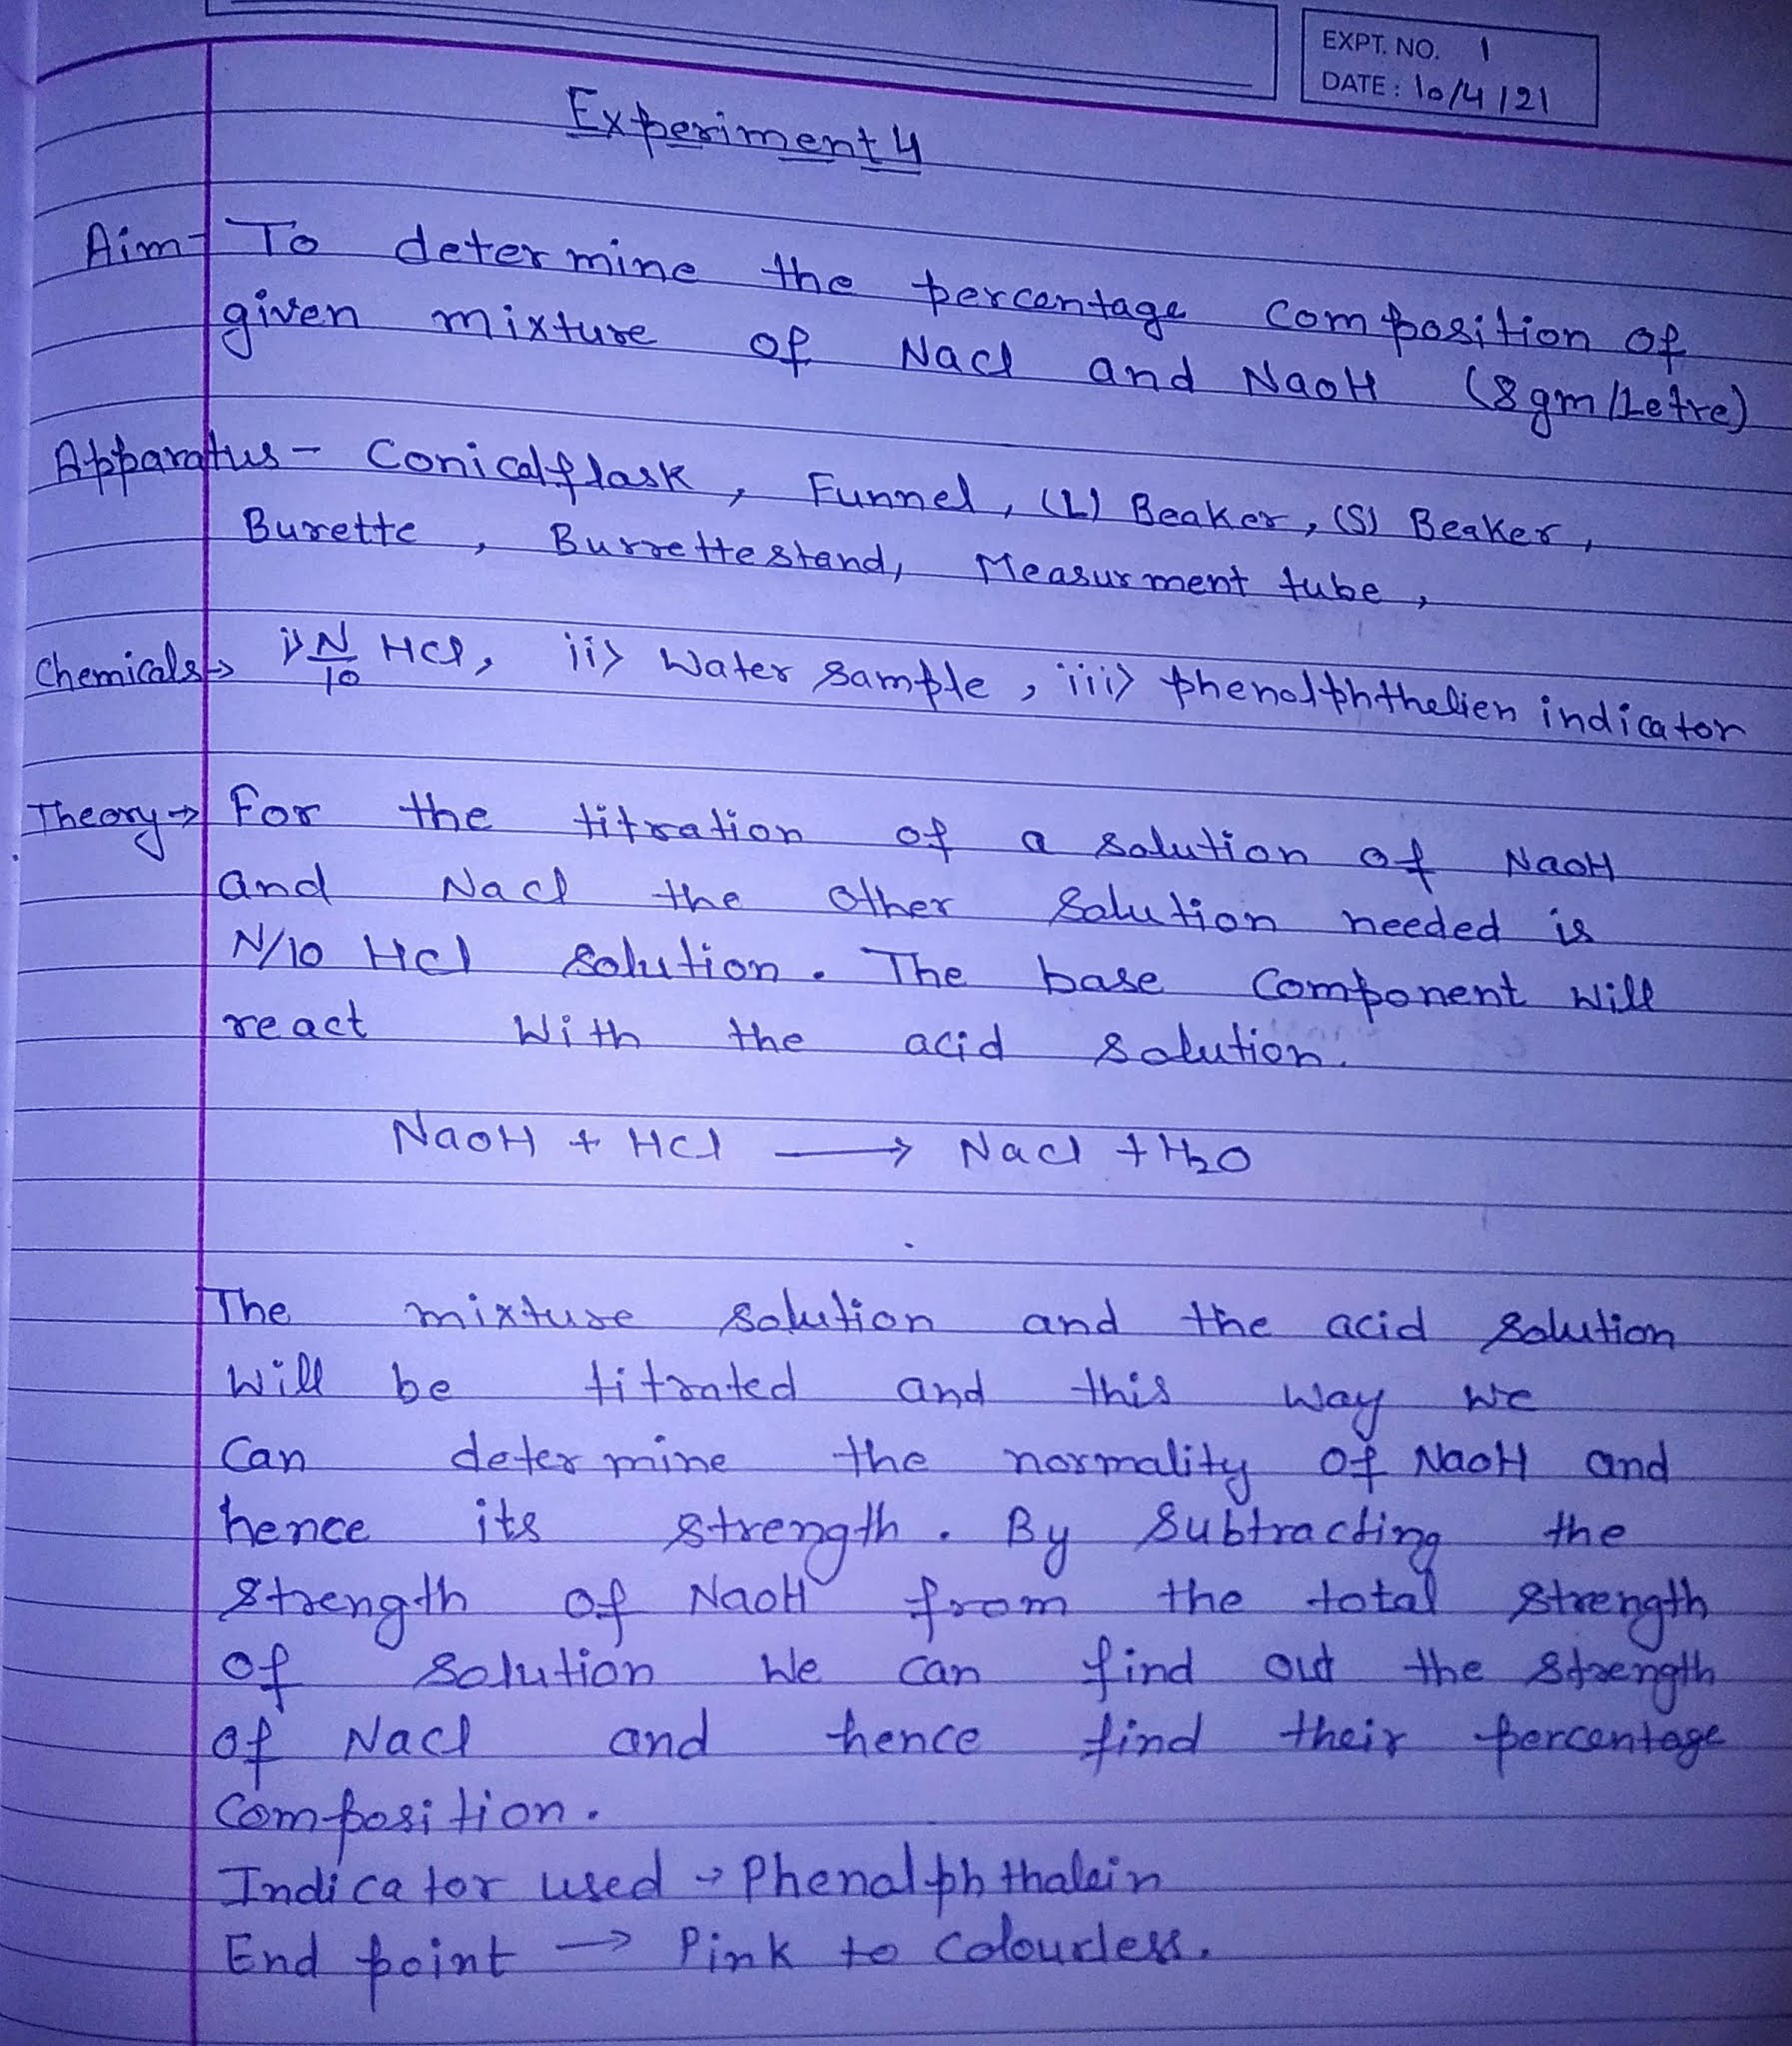 EXPT. NO. 1
DATE : 10/4/21
Experiment 4
Aim- To determine the percentage composition of
given mixture of Nacl and NaoH (8gm/Letre)
Apparatus - Conicalflask, Funnel, (L) Beaker, (S) Beaker,
Burette, Burrettestand, Measurment tube,
Chemicals→ i) N/10 HCl, ii) Water sample, iii) phenolphthelien indicator
Theory→ For the titration of a solution of NaoH
and Nacl the other solution needed is
N/10 Hcl solution. The base component will
react with the acid solution.
NaoH + HCl → Nacl + H2O
The mixture solution and the acid solution
will be titrated and this way we
can determine the normality of NaoH and
hence its strength. By subtracting the
strength of NaoH from the total strength
of solution we can find out the strength
of Nacl and hence find their percentage
composition.
Indicator used → Phenalphthalein
End point → Pink to Colourless.